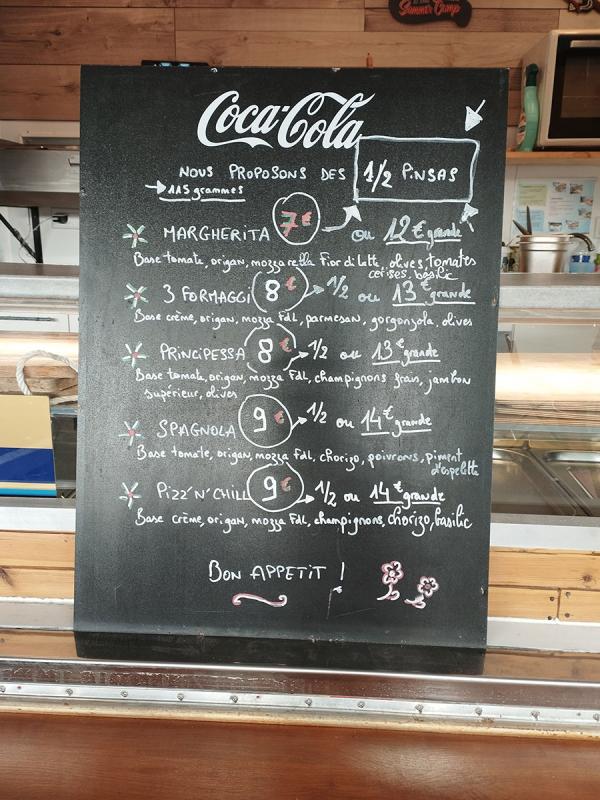 Summer Camp
Coca-Cola
NOUS PROPOSONS DES 1/2 PINSAS
→ 115 grammes
MARGHERITA 7€ ou 12€ grande
Base tomate, origan, mozzarella Fior di Latte, olives, tomates
cerises, basilic
3 FORMAGGI 8€ → 1/2 ou 13€ grande
Base crème, origan, mozza FdL, parmesan, gorgonzola, olives
PRINCIPESSA 8€ → 1/2 ou 13€ grande
Base tomate, origan, mozza FdL, champignons frais, jambon
supérieur, olives
SPAGNOLA 9€ → 1/2 ou 14€ grande
Base tomate, origan, mozza FdL, chorizo, poivrons, piment
d'espelette
PIZZ'N'CHILL 9€ → 1/2 ou 14€ grande
Base crème, origan, mozza FdL, champignons, chorizo, basilic
BON APPETIT !